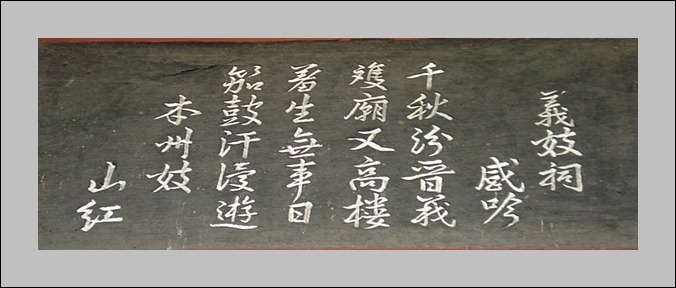 義妓祠
感吟
千秋汾晋義
雙廟又高楼
羞生無事日
笳鼓汗漫遊
本州妓
山紅